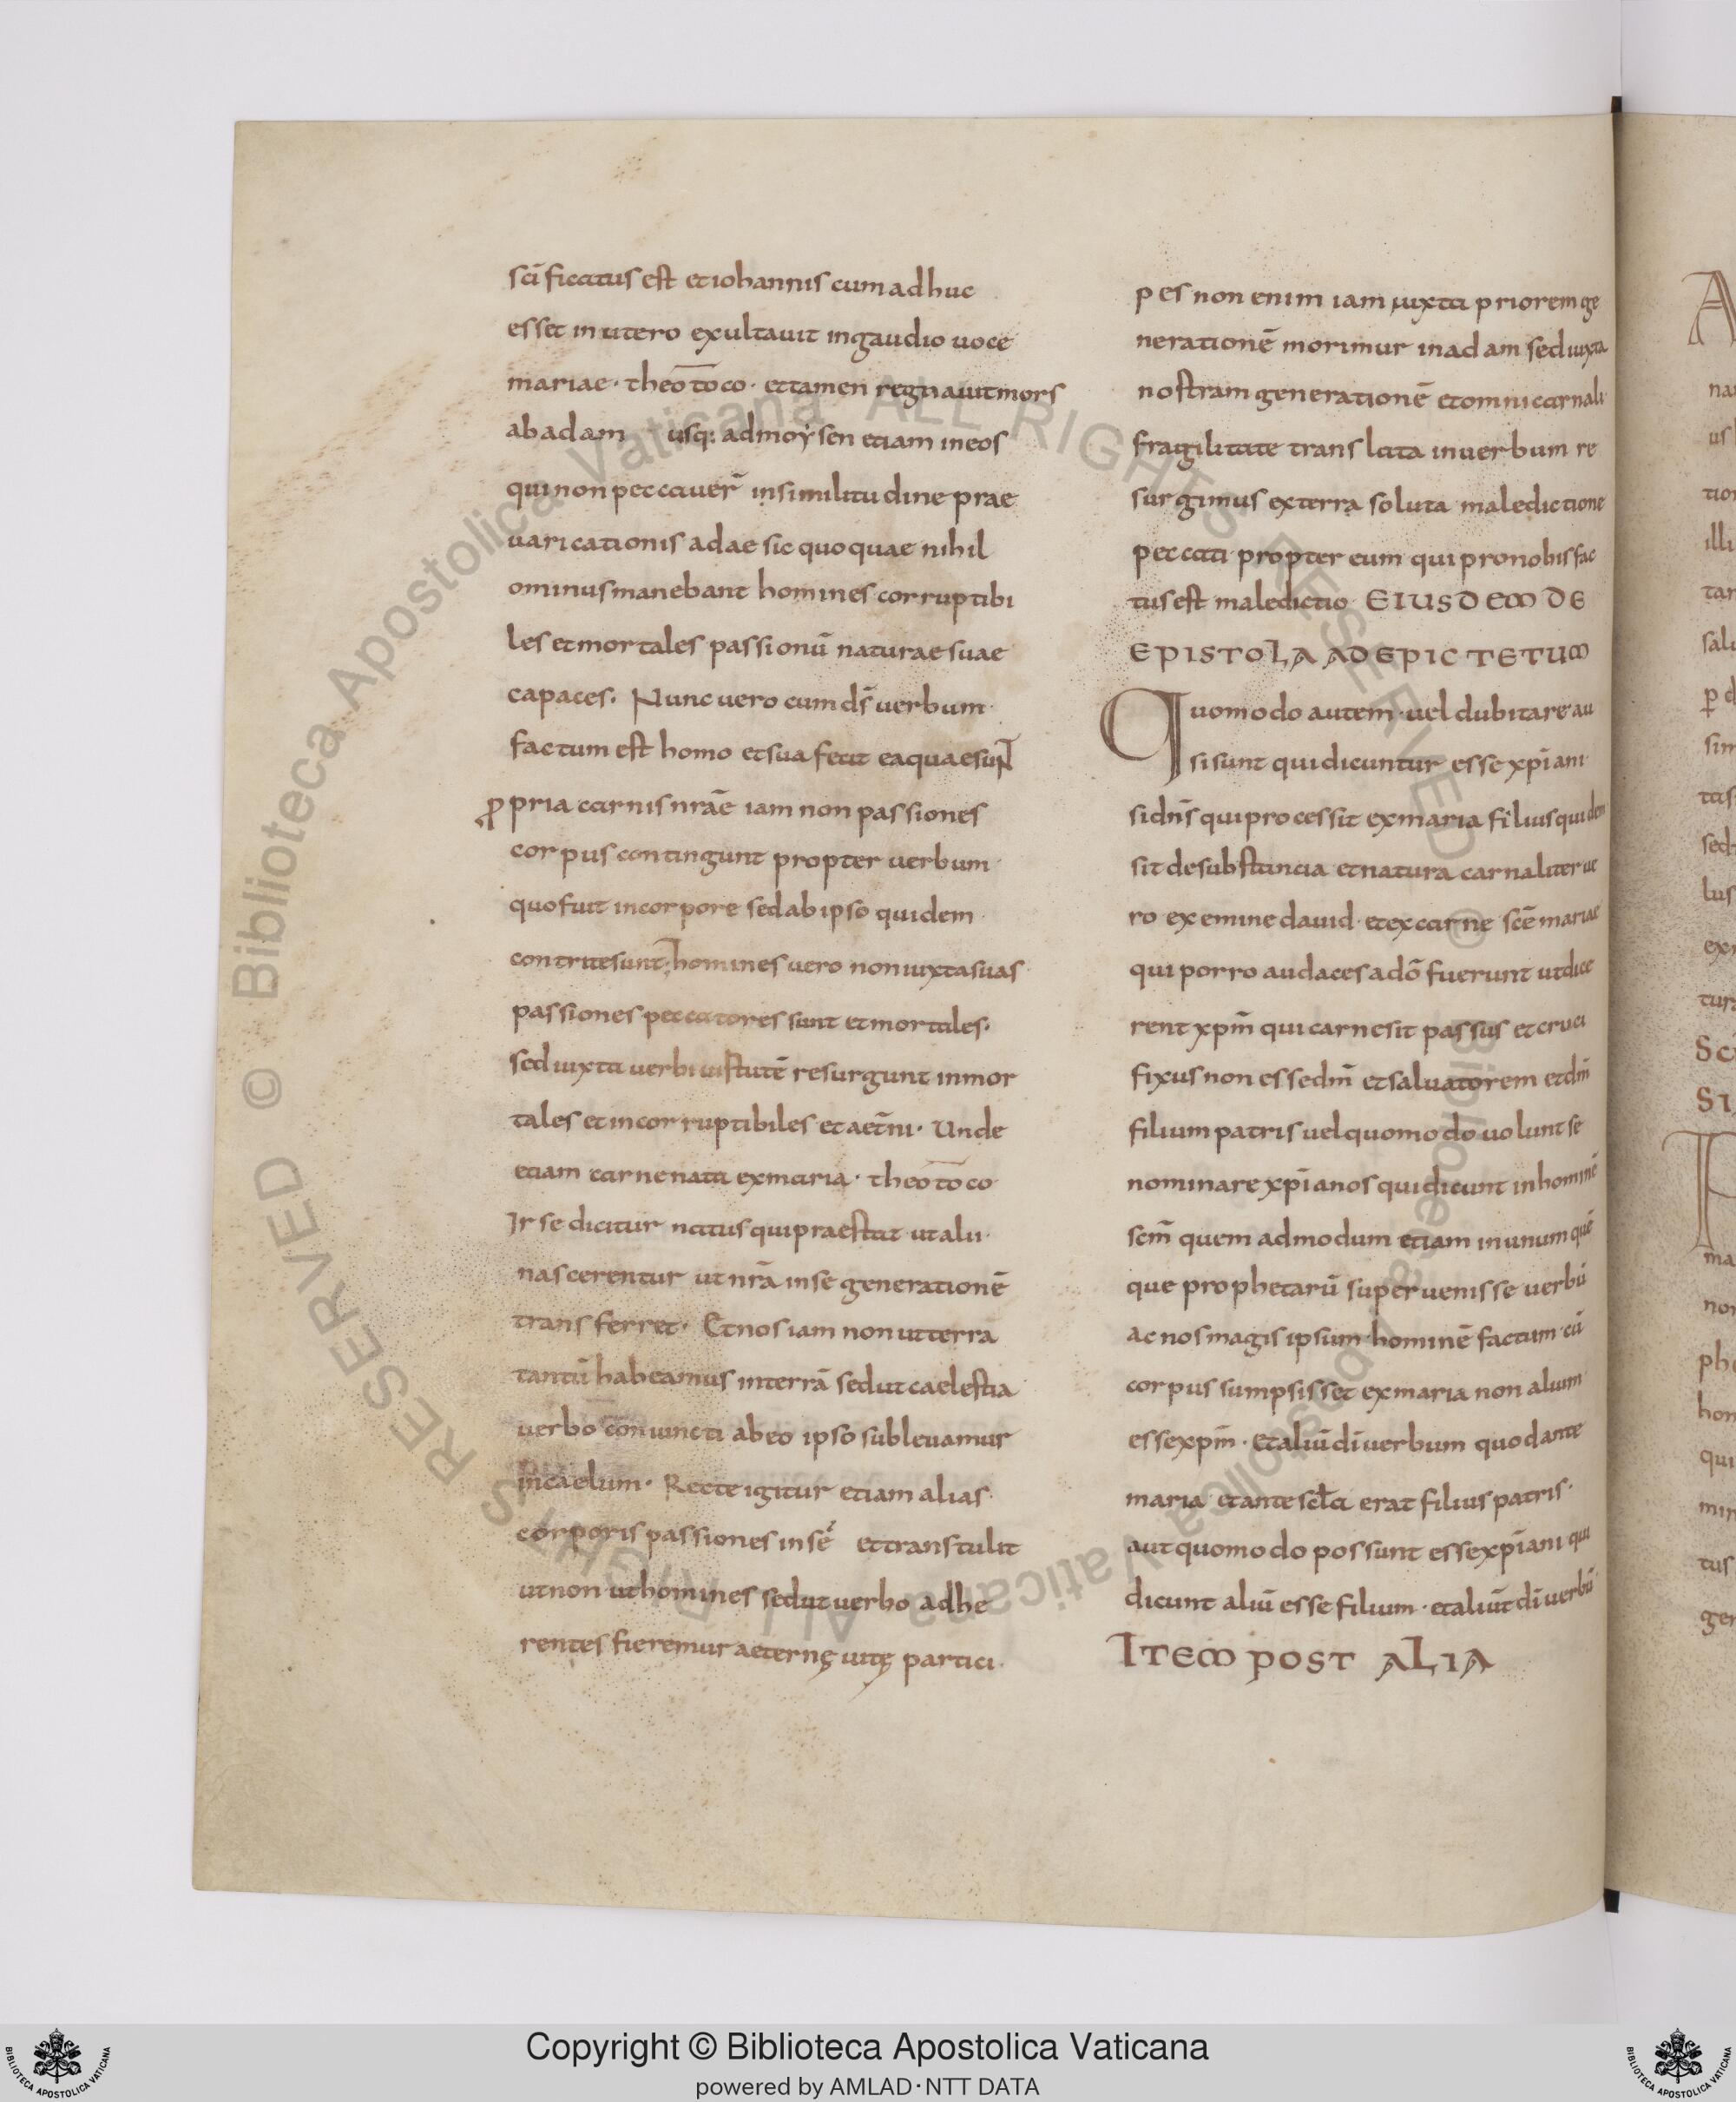 scī ficatus est et iohannis cum adhuc
esset in utero exultauit in gaudio uoce
mariae · theo̅to̅co · et tamen regnauit mors
ab adam usq; ad moysen etiam in eos
qui non peccauer̄ in similitudine prae
uaricationis adae sic quoquae nihil
ominus manebant homines corruptibi
les et mortales passionū naturae suae
capaces. Nunc uero cum ds̄ uerbum
factum est homo et sua fecit ea quae sunt
ꝓpria carnis nrāe iam non passiones
corpus contingunt propter uerbum
quo fuit in corpore sed ab ipso quidem
contrite sunt; homines uero non iuxta suas
passiones peccatores sunt et mortales.
sed iuxta uerbi uistutē resurgunt inmor
tales et incorruptibiles et aet̄ni · Unde
etiam carne nata ex maria · theo̅to̅co
Ir se dicitur natus qui praestat ut alii
nascerentur ut nrā in se generationē
transferret · Et nos iam non ut terra
tantū habeamus in terrā sed ut caelestia
uerbo coniuncti ab eo ipso subleuamur
in caelum · Recte igitur etiam alias
corporis passiones in sē et transtulit
ut non ut homines sed ut uerbo adhe
rentes fieremur aeternę uitę partici
pes non enim iam iuxta priorem ge
nerationē morimur in adam sed iuxta
nostram generationē et omni carnali
fragilitate translata in uerbum re
surgimus ex terra soluta maledictione
peccati propter eum qui pro nobis fac
tus est maledictio EIUSDEM DE
EPISTOLA AD EPICTETUM
Quomodo autem · uel dubitare au
si sunt qui dicuntur esse xpīani
si dn̄s qui processit ex maria filius quidem
sit de substancia et natura carnaliter ue
ro ex emine dauid · et ex carne scē mariae
qui porro audaces adō fuerunt ut dice
rent xpm̄ qui carne sit passus et cruci
fixus non esse dm̄ et saluatorem et dm̄
filium patris uel quomodo uolunt se
nominare xpīanos qui dicunt in hominē
scm̄ quem admodum etiam in unum quē
que prophetarū superuenisse uerbū
ac nos magis ipsum · hominē factum · cū
corpus sumpsisset ex maria non alium
esse xpm̄ · et aliūt dī uerbum quod ante
maria et ante scl̄a erat filius patris ·
aut quomodo possunt esse xpīani qui
dicunt aliū esse filium · et aliūt dī uerbū
ITEM POST ALIA